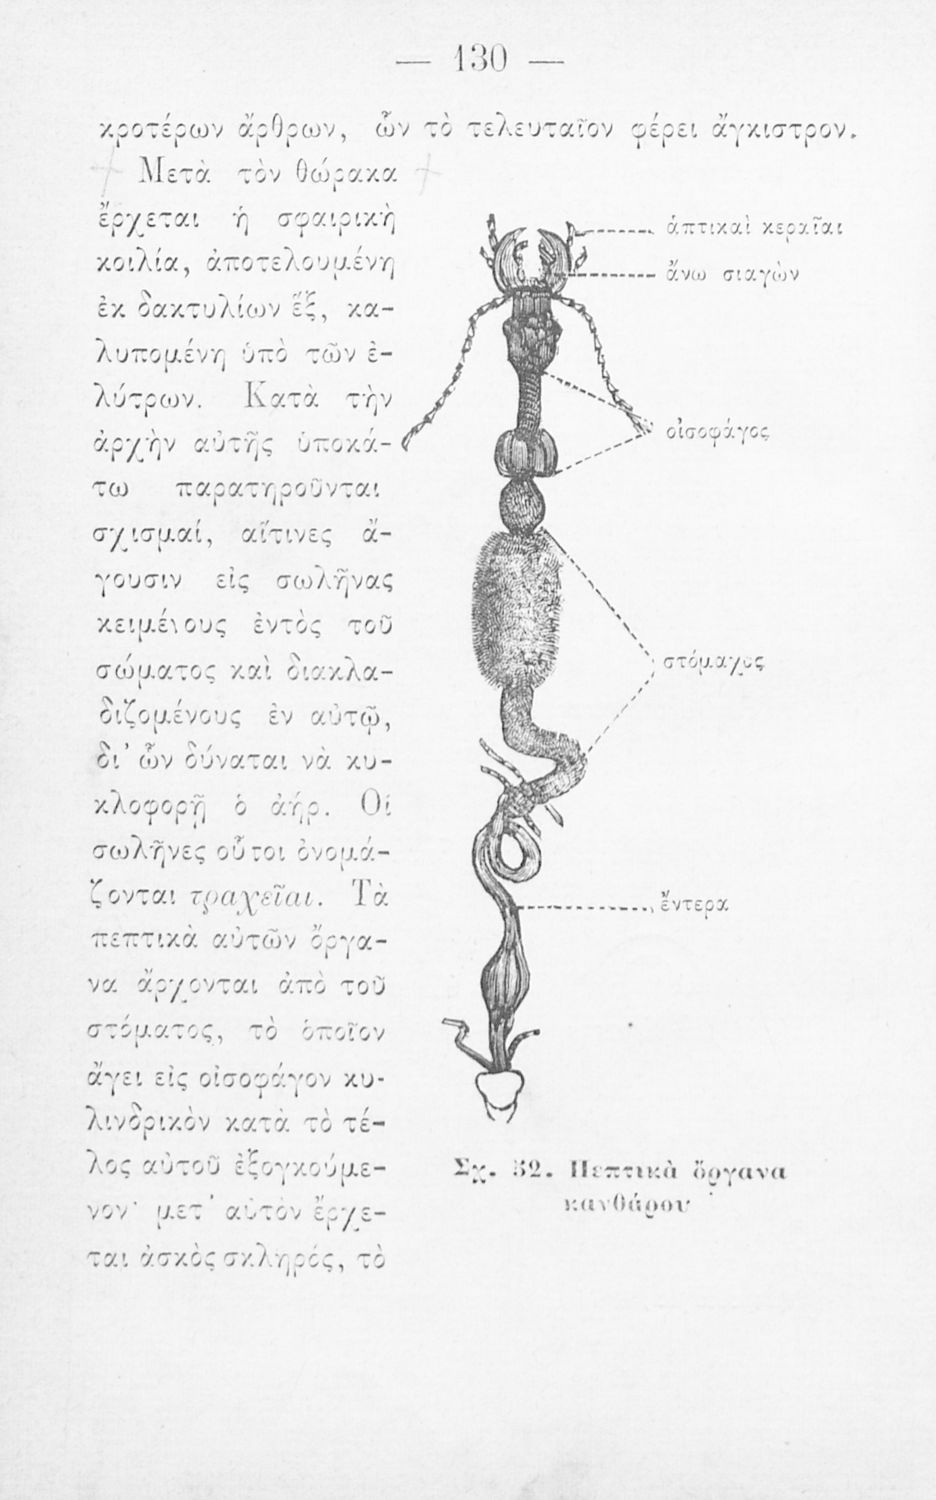 — 130 —
κροτέρων ἄρθρων, ὧν τὸ τελευταῖον φέρει ἄγκιστρον.
Μετὰ τὸν θώρακα
ἔρχεται ἡ σφαιρικὴ
κοιλία, ἀποτελουμένη
ἐκ δακτυλίων ἕξ, κα-
λυπομένη ὑπὸ τῶν ἐ-
λύτρων. Κατὰ τὴν
ἀρχὴν αὐτῆς ὑποκά-
τω παρατηροῦνται
σχισμαί, αἵτινες ἄ-
γουσιν εἰς σωλῆνας
κειμένους ἐντὸς τοῦ
σώματος καὶ διακλα-
διζομένους ἐν αὐτῷ,
δι’ ὧν δύναται νὰ κυ-
κλοφορῇ ὁ ἀήρ. Οἱ
σωλῆνες οὗτοι ὀνομά-
ζονται τραχεῖαι. Τὰ
πεπτικὰ αὐτῶν ὄργα-
να ἄρχονται ἀπὸ τοῦ
στόματος, τὸ ὁποῖον
ἄγει εἰς οἰσοφάγον κυ-
λινδρικὸν κατὰ τὸ τέ-
λος αὐτοῦ ἐξογκούμε-
νον· μετ’ αὐτὸν ἔρχε-
ται ἀσκὸς σκληρός, τὸ
ἁπτικαὶ κεραῖαι
ἄνω σιαγὼν
οἰσοφάγος
στόμαχος
ἔντερα
Σχ. 52. Πεπτικὰ ὄργανα
κανθάρου